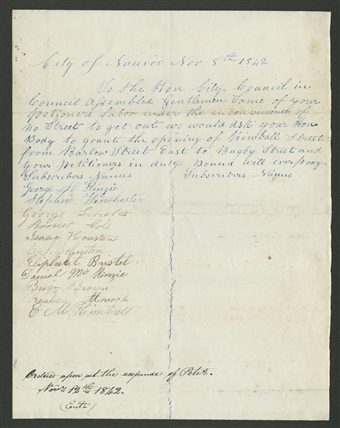 City of Nauvoo Nov 5th 1842
To the Hon City Council in
Council Assembled Gentlemen Some of your
Petitioners Labor under the inconvenience of
No Street to get out we would ask your Hon
Body to grant the opening of Kimball Street
from Barlow Street East to Bagby Street and
your Petitioners in duty Bound will ever pray
Subscribers Names Subscribers Names
George M Hinzie
Stephen Winchester
George
Barnet Cole
Isaac Houston
Johnston
Eliphalet Bristol
Daniel Mc Kinzie
Brown
E. M. Kimball
Ordered open at the expense of Petrs.
Novr 12th 1842.